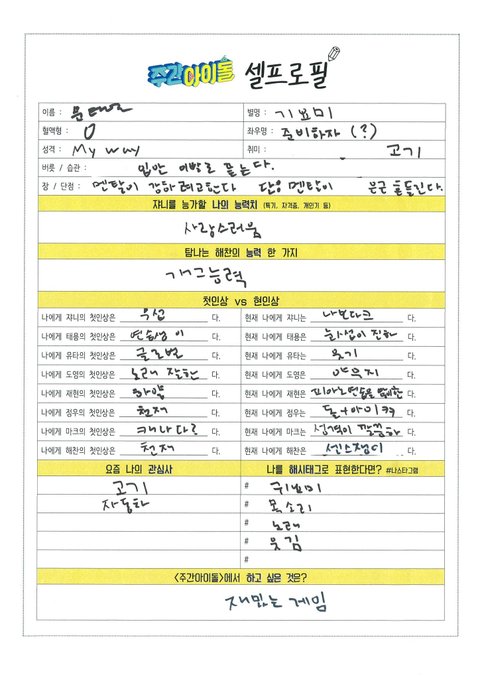 주간아이돌 셀프로필
이름 : 문태일 별명 : 기요미
혈액형 : O 좌우명 : 준비하자 (?)
성격 : My way 취미 : 고기
버릇 / 습관 : 입안 이빨로 뜯는다.
장 / 단점 : 멘탈이 강하려고한다 단점 멘탈이 은근 흔들린다.
쟈니를 능가할 나의 능력치 (특기, 자격증, 개인기 등)
사랑스러움
탐나는 해찬의 능력 한 가지
개그능력
첫인상 vs 현인상
나에게 쟈니의 첫인상은 우선 다. 현재 나에게 쟈니는 나보다크 다.
나에게 태용의 첫인상은 연습생 이 다. 현재 나에게 태용은 화섭이 진하 다.
나에게 유타의 첫인상은 글로벌 다. 현재 나에게 유타는 웃기 다.
나에게 도영의 첫인상은 노래 잘한 다. 현재 나에게 도영은 야무지 다.
나에게 재현의 첫인상은 하얗 다. 현재 나에게 재현은 피아노연습을 다.
나에게 정우의 첫인상은 천재 다. 현재 나에게 정우는 돌+아이 다.
나에게 마크의 첫인상은 캐나다 다. 현재 나에게 마크는 성격이 깔끔하 다.
나에게 해찬의 첫인상은 천재 다. 현재 나에게 해찬은 센스쟁이 다.
요즘 나의 관심사 나를 해시태그로 표현한다면? #나스타그램
고기 # 귀요미
자동차 # 목소리
# 노래
# 웃김
#
<주간아이돌>에서 하고 싶은 것은?
재밌는 게임